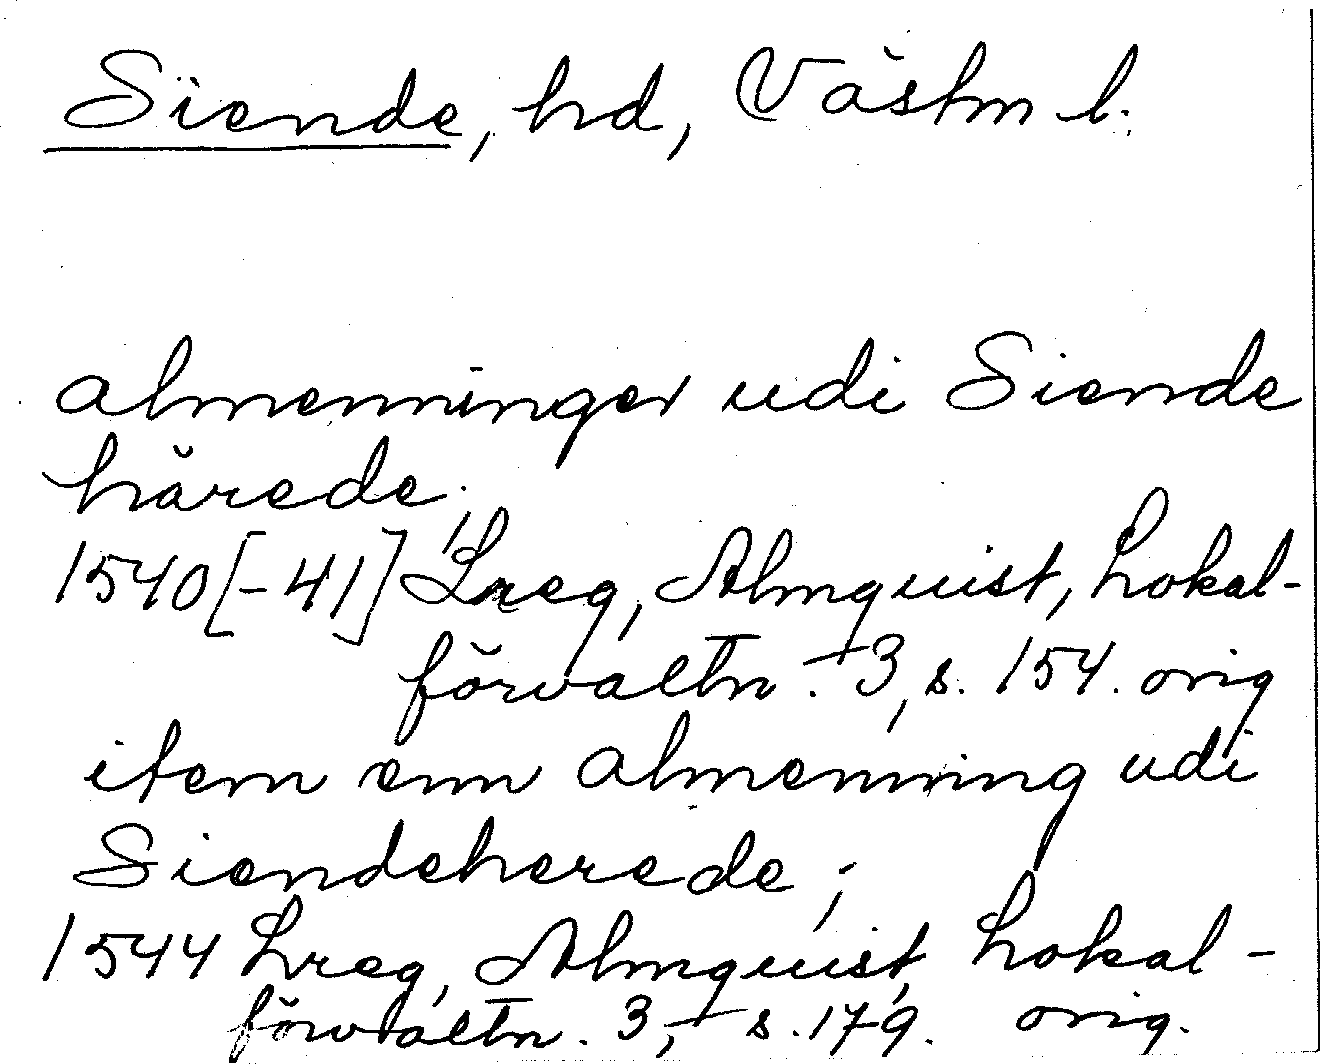 Siende, hd, Västm l.
almenninger udi Siende
härede;
1540[-41] Lreg, Almquist, Lokal-
förvaltn. 3, s. 154. orig
item enn almenning udi
Siendeherede;
1544 Lreg, Almquist, Lokal-
förvaltn. 3, s. 179. orig.